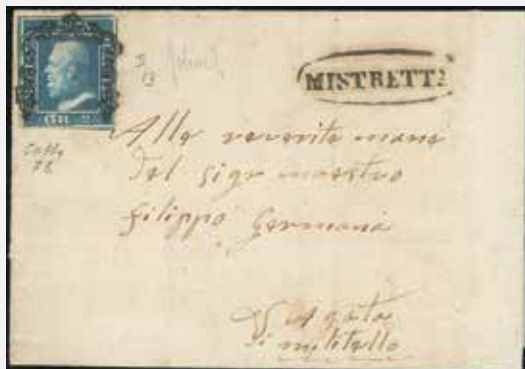 GR 2
MISTRETTA
Alle reverite mane
Del sigr maestro
Filippo Germanà
S Agata
di militello